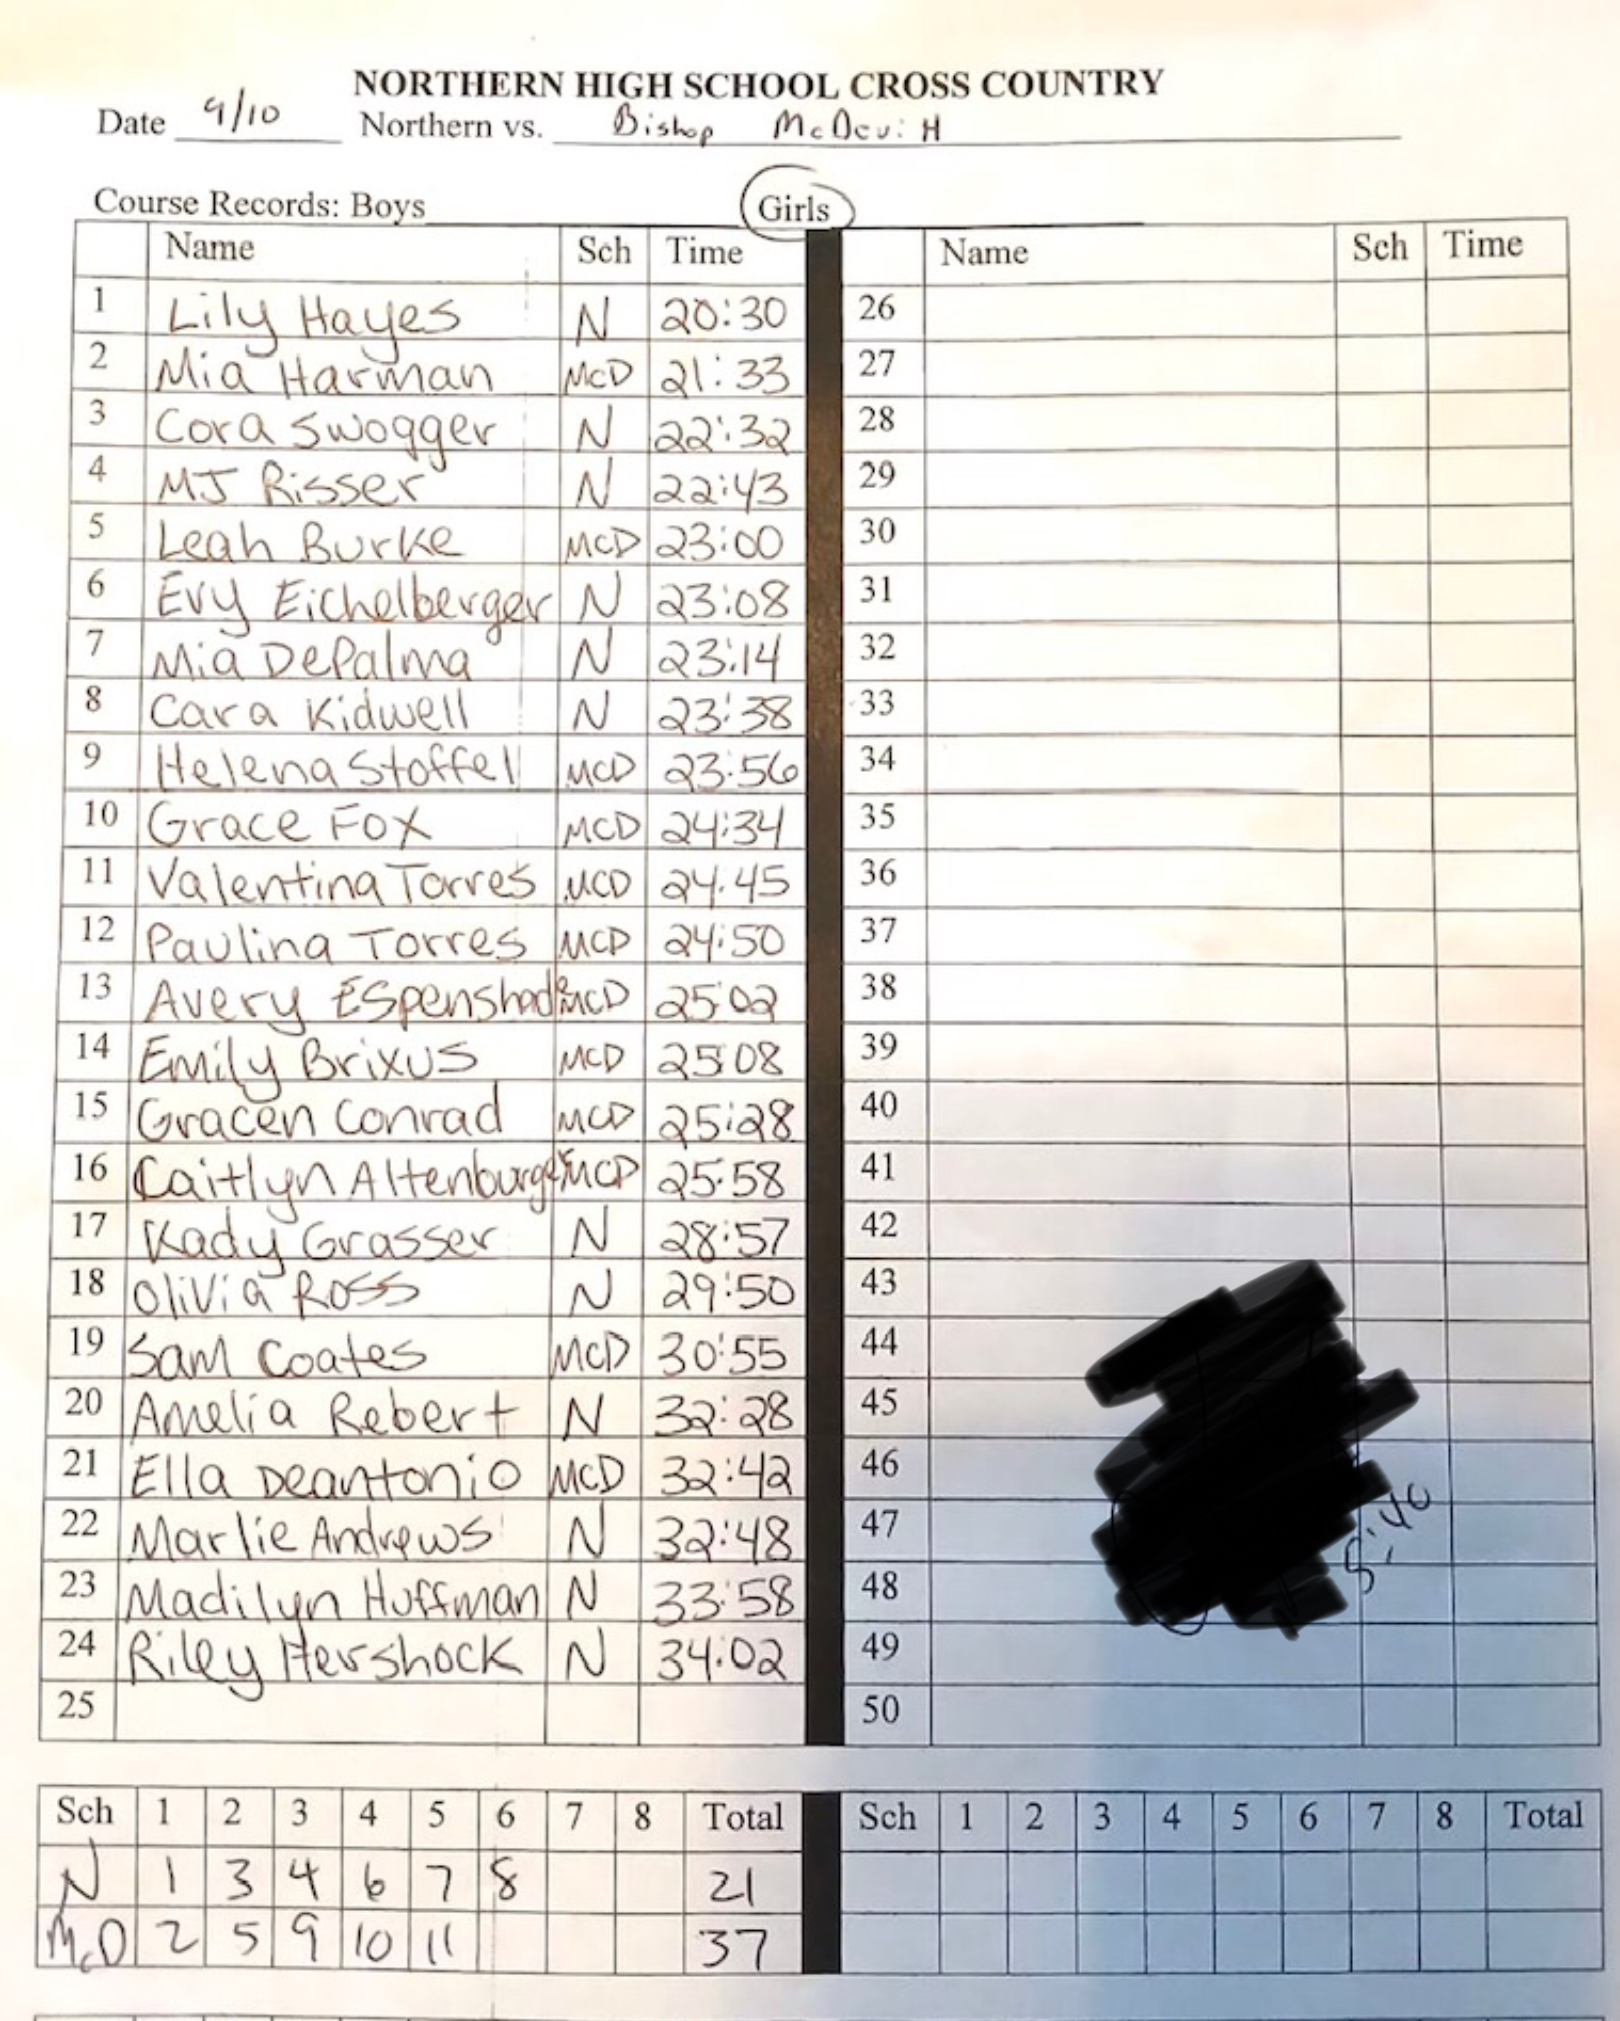 NORTHERN HIGH SCHOOL CROSS COUNTRY
Date 9/10 Northern vs. Bishop McDevitt
Course Records: Boys Girls
Name Sch Time Name Sch Time
1 Lily Hayes N 20:30 26
2 Mia Harman McD 21:33 27
3 Cora Swogger N 22:32 28
4 MJ Risser N 22:43 29
5 Leah Burke MCD 23:00 30
6 Evy Eichelberger N 23:08 31
7 Mia DePalma N 23:14 32
8 Cara Kidwell N 23:38 33
9 Helena Stoffel MCD 23:56 34
10 Grace Fox MCD 24:34 35
11 Valentina Torres MCD 24:45 36
12 Paulina Torres MCD 24:50 37
13 Avery Espenshade MCD 25:02 38
14 Emily Brixus MCD 25:08 39
15 Gracen Conrad MCD 25:28 40
16 Caitlyn Altenburger MCD 25:58 41
17 Kady Grasser N 28:57 42
18 Olivia Ross N 29:50 43
19 Sam Coates MCD 30:55 44
20 Amelia Rebert N 32:28 45
21 Ella Deantonio MCD 32:42 46
22 Marlie Andrews N 32:48 47
23 Madilyn Huffman N 33:58 48
24 Riley Hershock N 34:02 49
25 50
Sch 1 2 3 4 5 6 7 8 Total Sch 1 2 3 4 5 6 7 8 Total
N 1 3 4 6 7 8 21
McD 2 5 9 10 11 37